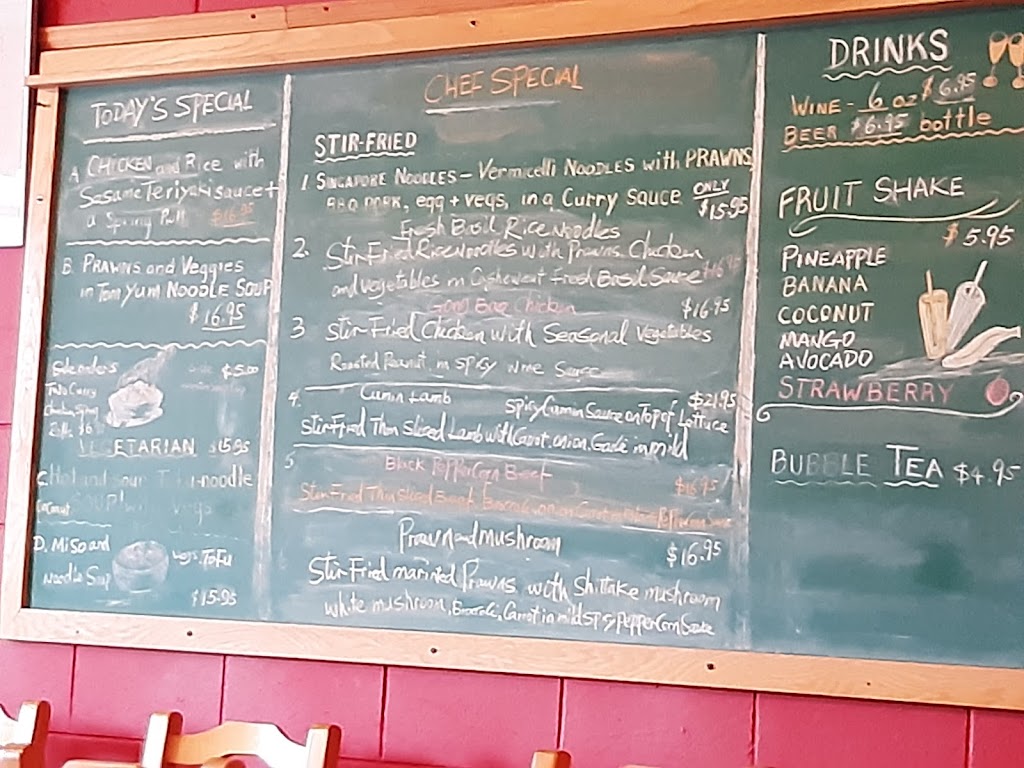 TODAY'S SPECIAL
A CHICKEN and Rice with
Sesame Teriyaki sauce +
a Spring Roll $16.95
B. PRAWNS and Veggies
in Tom Yum NOODLE SOUP
$16.95
$5.00
Curry
$6
VEGETARIAN $15.95
C Hot and Sour noodle
SOUP
Coconut
D. Miso and
Noodle Soup
Vegs, ToFu
$15.95
CHEF SPECIAL
STIR-FRIED
1 SINGAPORE NOODLES - Vermicelli NOODLES with PRAWNS,
BBQ PORK, egg + vegs, in a Curry Sauce ONLY
$15.95
Fresh Basil Rice Noodles
2. Stir-Fried Rice Noodles with Prawns, Chicken
and vegetables in Cashewnut Fresh Basil Sauce $16.95
Gong Bao Chicken $16.95
3 Stir-Fried Chicken with Seasonal Vegetables
Roasted Peanut in spicy wine Sauce
4. Cumin Lamb $21.95
Spicy Cumin Sauce on Top of Lettuce
Stir-Fried Thin Sliced Lamb with Carrot, onion, in mild
5 Black PepperCorn Beef $16.95
Stir-Fried Thin Sliced Beef Broccoli, onion, Carrot PepperCorn Sauce
Prawn and mushroom $16.95
6
Stir-Fried marinted Prawns with Shittake mushroom
white mushroom, Broccoli, Carrot in mild spicy PepperCorn Sauce
DRINKS
WINE - 6 oz $6.95
BEER $6.95 bottle
FRUIT SHAKE
$5.95
PINEAPPLE
BANANA
COCONUT
MANGO
AVOCADO
STRAWBERRY
BUBBLE TEA $4.95